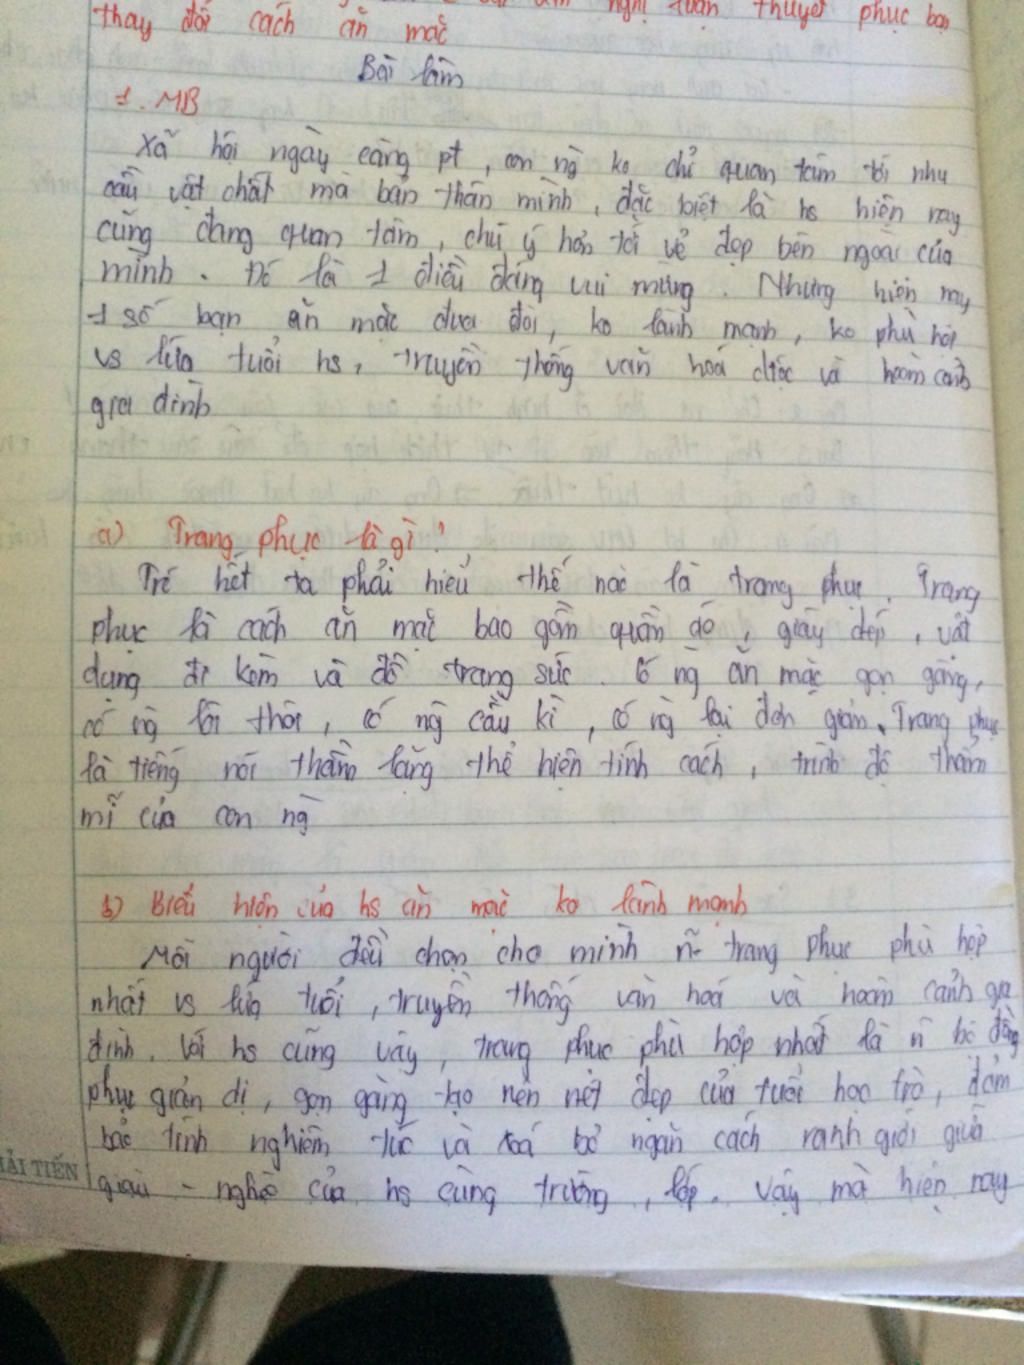 nghị luận thuyết phục bạn
thay đổi cách ăn mặc
Bài làm
1. MB
Xã hội ngày càng pt, con ng̀ ko chỉ quan tâm tới nhu
cầu vật chất mà bản thân mình, đặc biệt là hs hiện nay
cũng đang quan tâm, chú ý hơn tới vẻ đẹp bên ngoài của
mình. Đó là 1 điều đáng vui mừng. Nhưng hiện nay
1 số bạn ăn mặc đua đòi, ko lành mạnh, ko phù hợp
vs lứa tuổi hs, truyền thống văn hoá dtộc và hoàn cảnh
gia đình
a) Trang phục là gì?
Trc hết ta phải hiểu thế nào là trang phục. Trang
phục là cách ăn mặc bao gồm quần áo, giày dép, vật
dụng đi kèm và đồ trang sức. Có ng̀ ăn mặc gọn gàng,
có ng̀ lôi thôi, có ng̀ cầu kì, có ng̀ lại đơn giản. Trang phục
là tiếng nói thầm lặng thể hiện tính cách, trình độ thẩm
mĩ của con ng̀
b) Biểu hiện của hs ăn mặc ko lành mạnh
Mỗi người đều chọn cho mình n~ trang phục phù hợp
nhất vs lứa tuổi, truyền thống văn hoá và hoàn cảnh gia
đình. Với hs cũng vậy, trang phục phù hợp nhất là n~ bộ đồng
phục giản dị, gọn gàng tạo nên nét đẹp của tuổi học trò, đảm
bảo tính nghiêm túc và xoá bỏ ngăn cách ranh giới giữa
giàu - nghèo của hs cùng trường, lớp. Vậy mà hiện nay
HẢI TIẾN